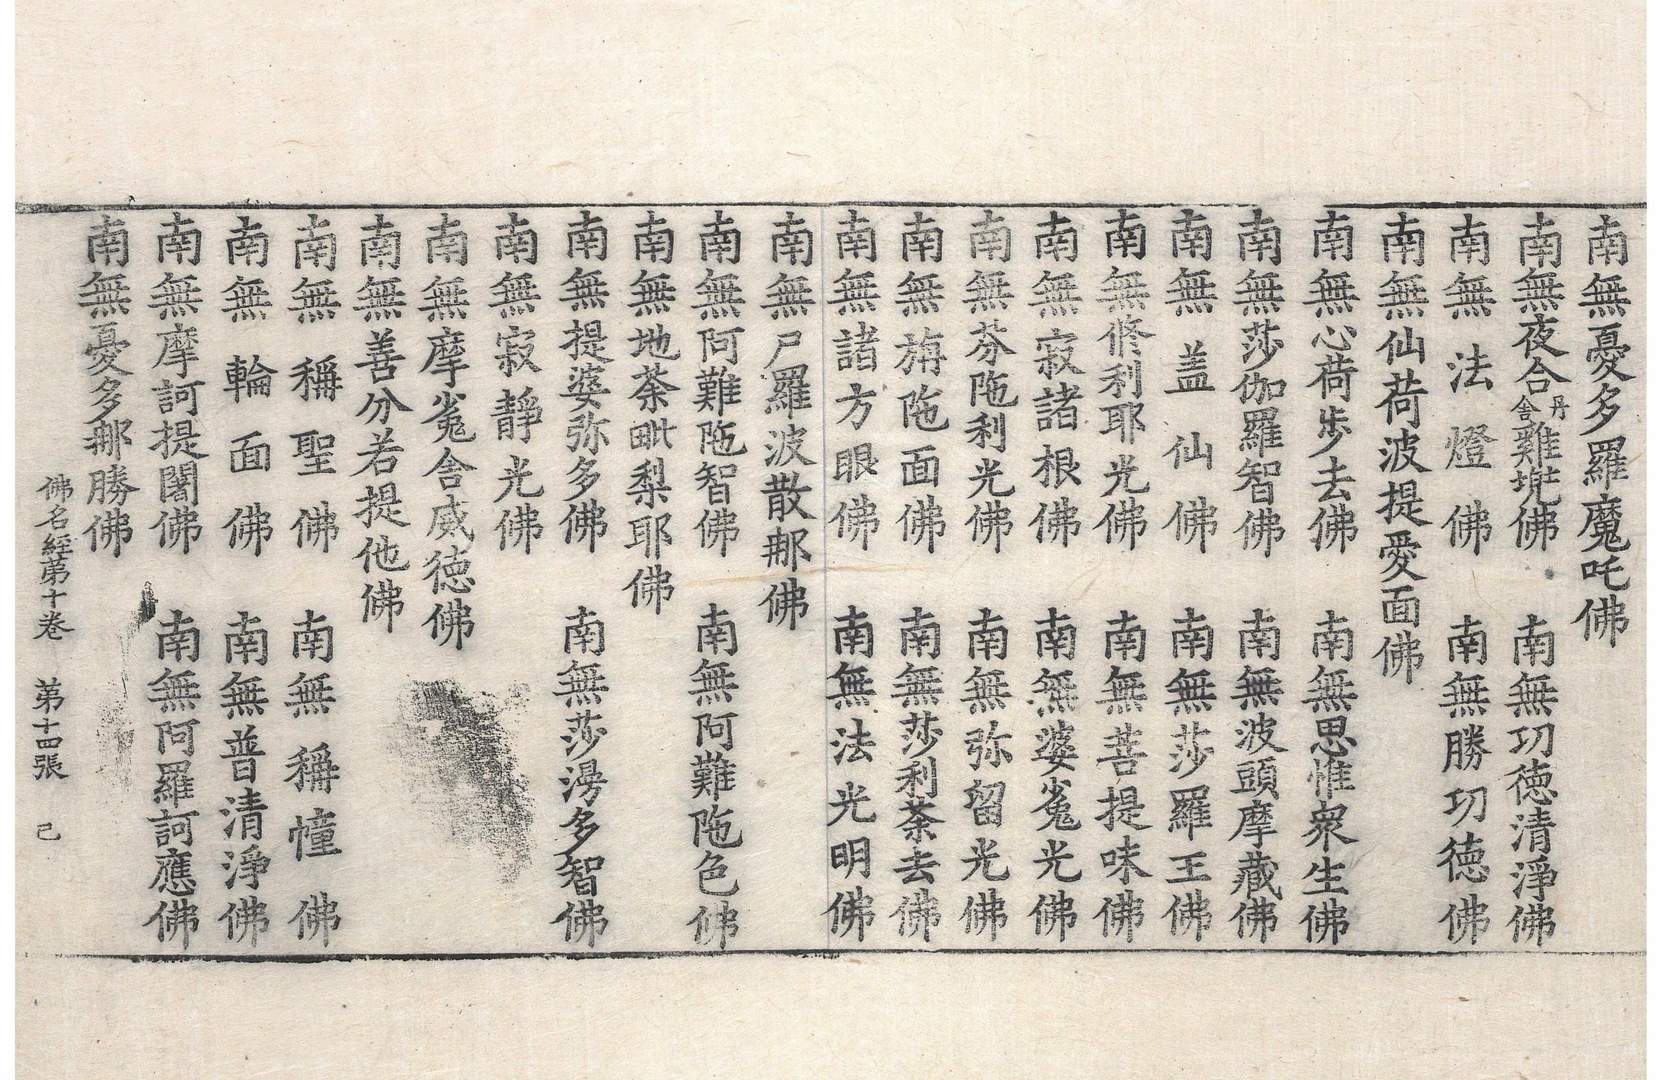 南無憂多羅魔吒佛
南無夜合丹舍雞兠佛　南無功德清淨佛
南無法燈佛　南無勝功德佛
南無仙荷波提愛面佛
南無心荷步去佛　南無思惟衆生佛
南無莎伽羅智佛　南無波頭摩藏佛
南無盖仙佛　南無莎羅王佛
南無修利耶光佛　南無菩提味佛
南無寂諸根佛　南無婆嵬光佛
南無芬陁利光佛　南無弥留光佛
南無旃陁面佛　南無莎利荼去佛
南無諸方眼佛　南無法光明佛
南無尸羅波散那佛
南無阿難陁智佛　南無阿難陁色佛
南無地荼毗梨耶佛
南無提婆弥多佛　南無莎漫多智佛
南無寂靜光佛
南無摩嵬舍威德佛
南無善分若提他佛
南無稱聖佛　南無稱幢佛
南無輪面佛　南無普清淨佛
南無摩訶提闍佛　南無阿羅訶應佛
南無憂多那勝佛
佛名經第十卷　第十四張　己